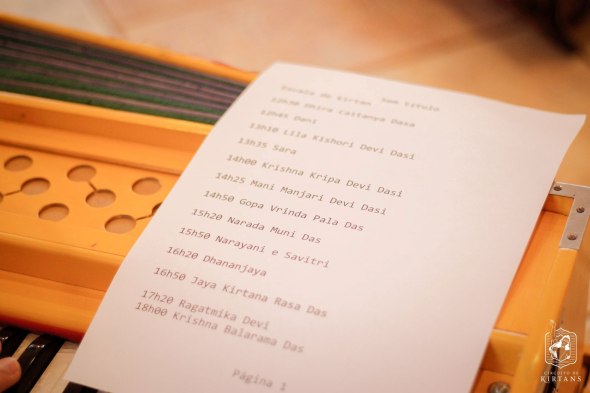 Escala de Kirtan   Sem título
12h30 Dhira Caitanya Dasa
12h45 Dani
13h10 Lila Kishori Devi Dasi
13h35 Sara
14h00 Krishna Kripa Devi Dasi
14h25 Mani Manjari Devi Dasi
14h50 Gopa Vrinda Pala Das
15h20 Narada Muni Das
15h50 Narayani e Savitri
16h20 Dhananjaya
16h50 Jaya Kirtana Rasa Das
17h20 Ragatmika Devi
18h00 Krishna Balarama Das
Página 1
CIRCUITO DE
KIRTANS